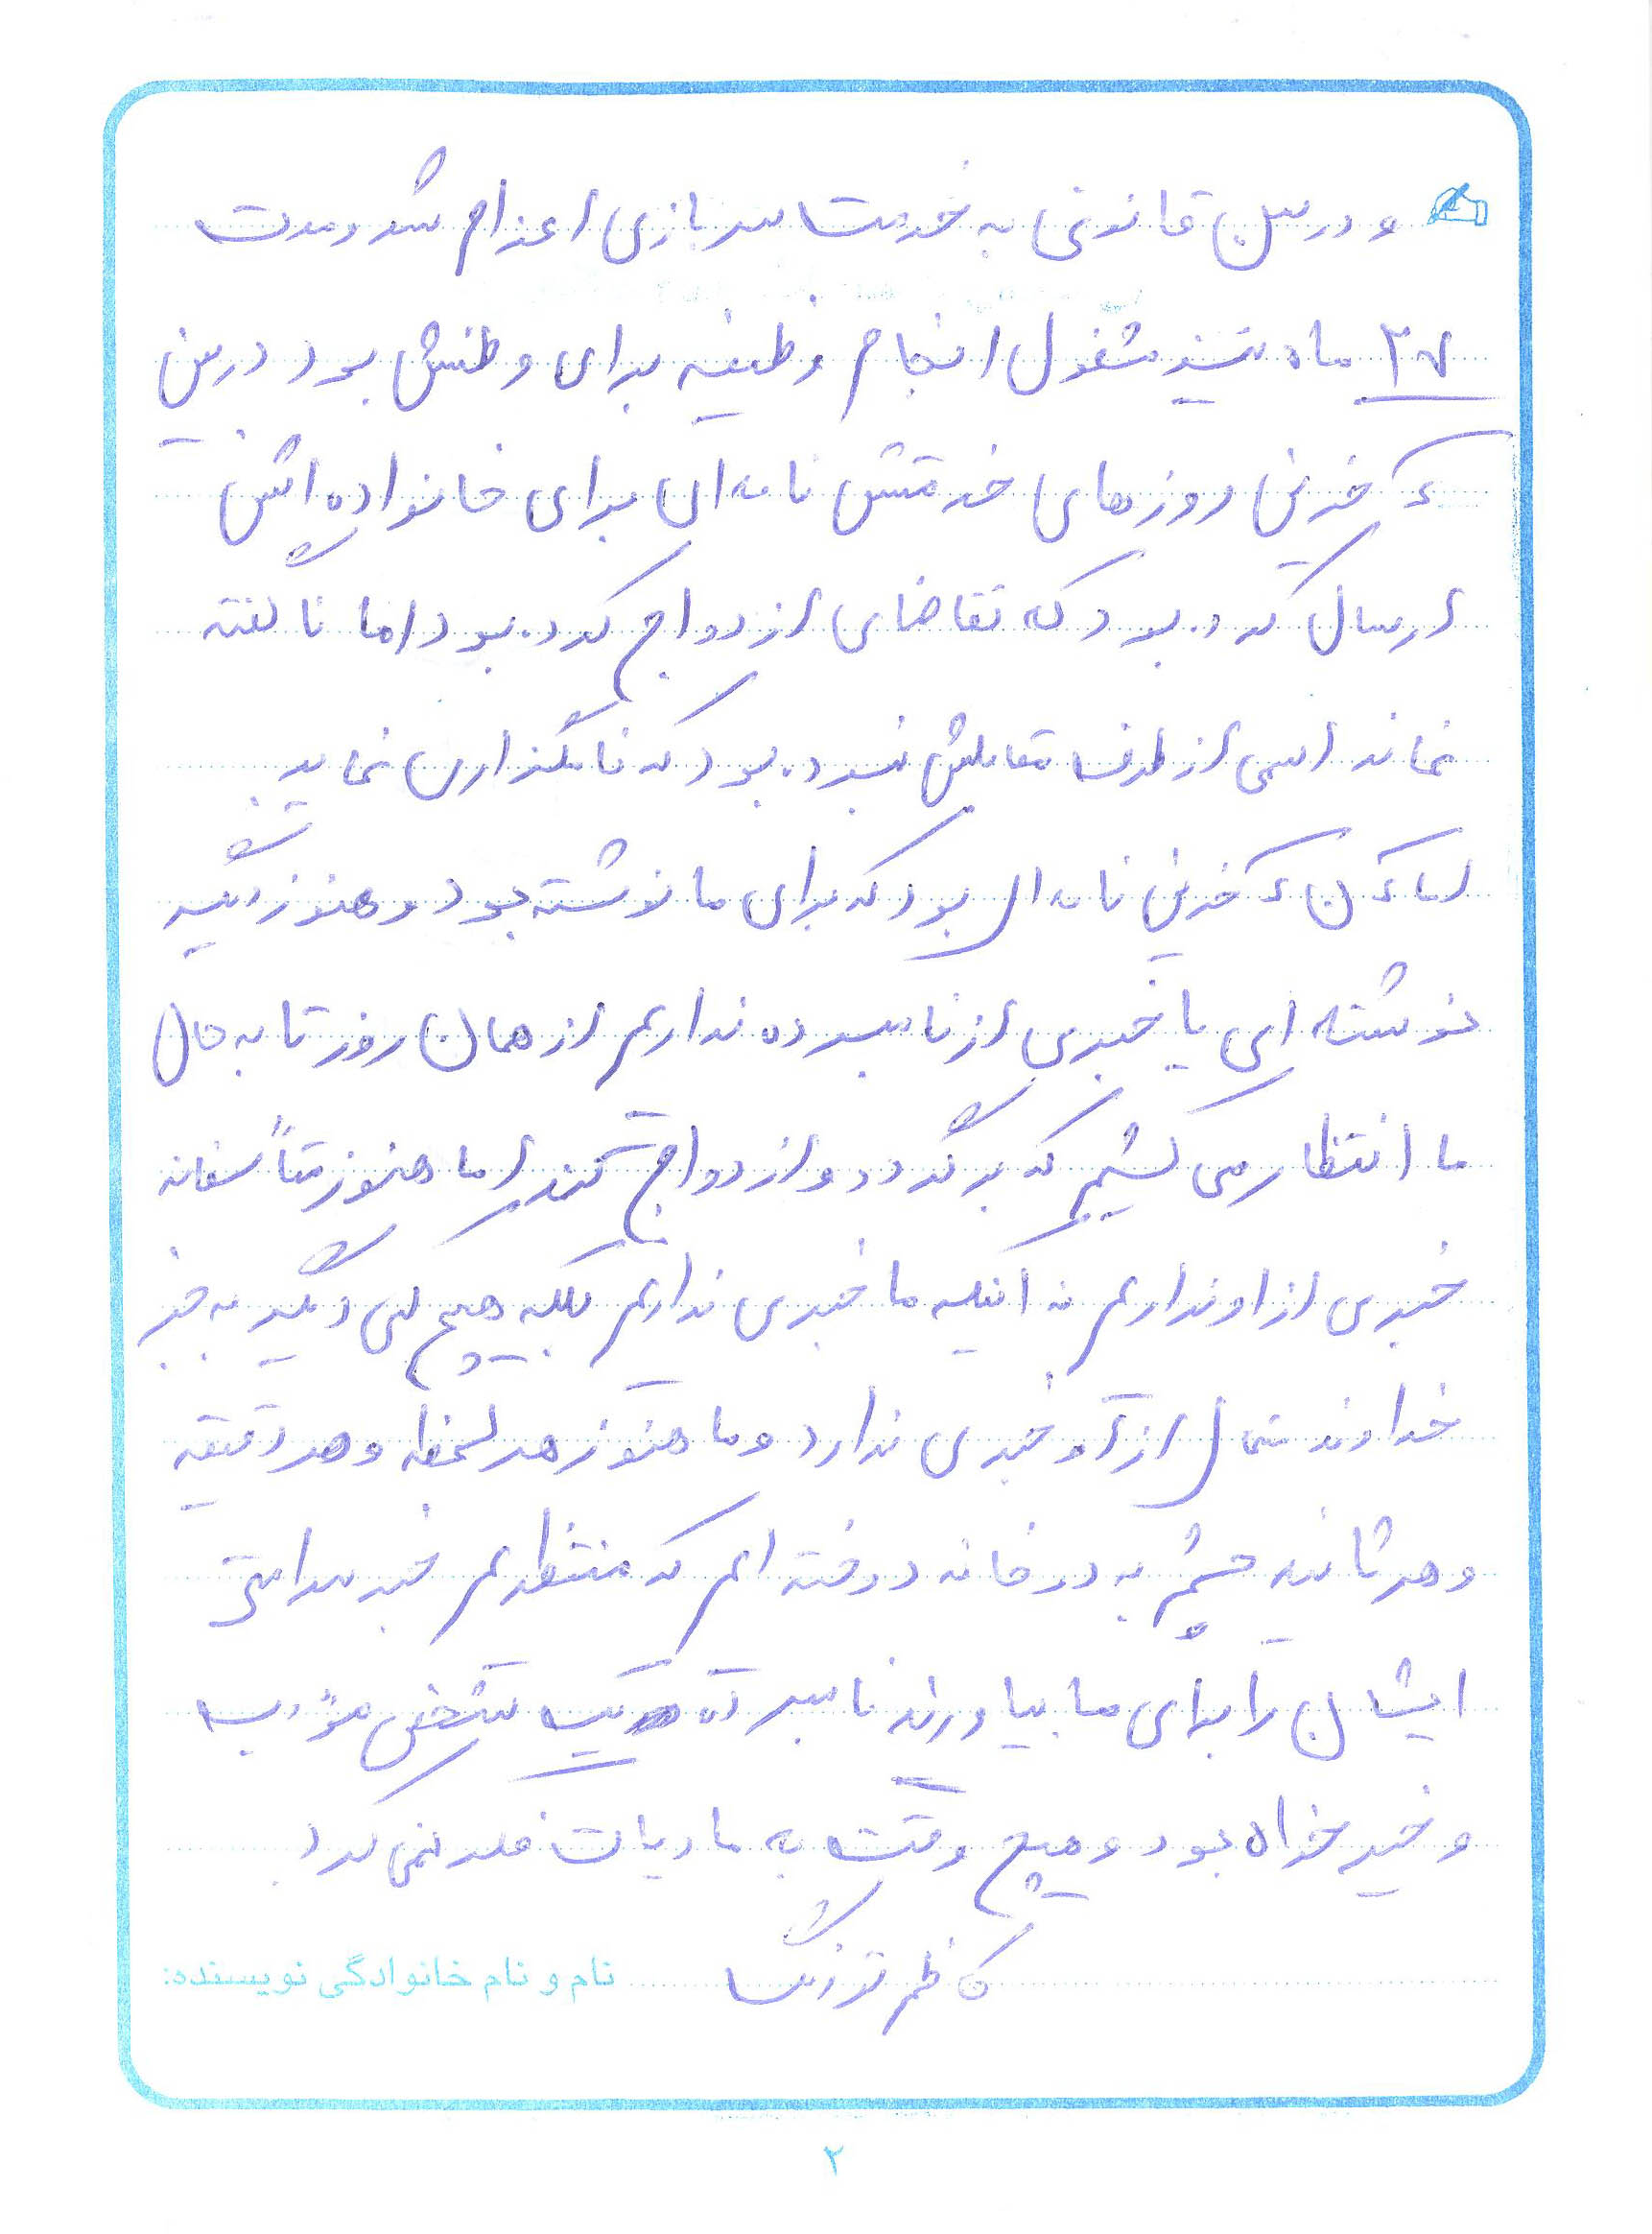 و در سن قانونی به خدمت سربازی اعزام شد و مدت
۲۷ ماه نیز مشغول انجام وظیفه برای وطنش بود در بین
آخرین روزهای خدمتش نامه ای برای خانواده اش
ارسال کرده بود که تقاضای ازدواج کرده بود اما ناگفته
نماند اسمی از طرف مقابلش نبرده بود که نامگذاری نماید
اما آن آخرین نامه ای بود که برای ما نوشته بود و هنوز دیگر
نوشته ای یا خبری از نامبرده نداریم از همان روز تا به حال
ما انتظار می کشیم که برگردد و ازدواج کند اما هنوز متأسفانه
خبری از او نداریم نه اینکه ما خبری نداریم بلکه هیچ کس دیگر به جز
خداوند متعال از او خبری ندارد و ما هنوز هر لحظه و هر دقیقه
و هر ثانیه چشم به در خانه دوخته ایم که منتظریم خبر سلامتی
ایشان را برای ما بیاورند نامبرده یک شخص مؤدب
و خیر خواه بود و هیچ وقت به مادیات فکر نمی کرد
نام و نام خانوادگی نویسنده: کاظم
۲